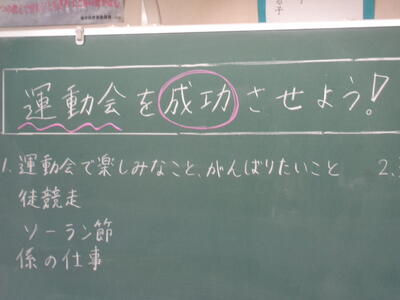 運動会を成功させよう!
1.運動会で楽しみなこと、がんばりたいこと 2.
徒競走
ソーラン節
係の仕事